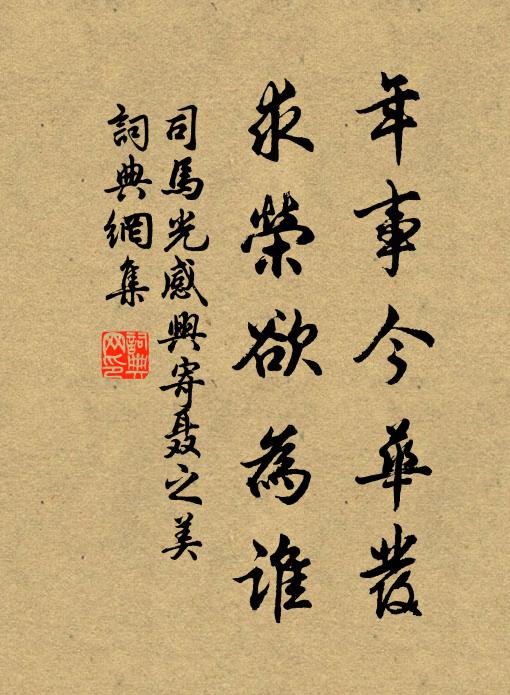 年事今華發
求榮欲為誰
司馬光感興寄聶之美
詞典網集
詞典網印